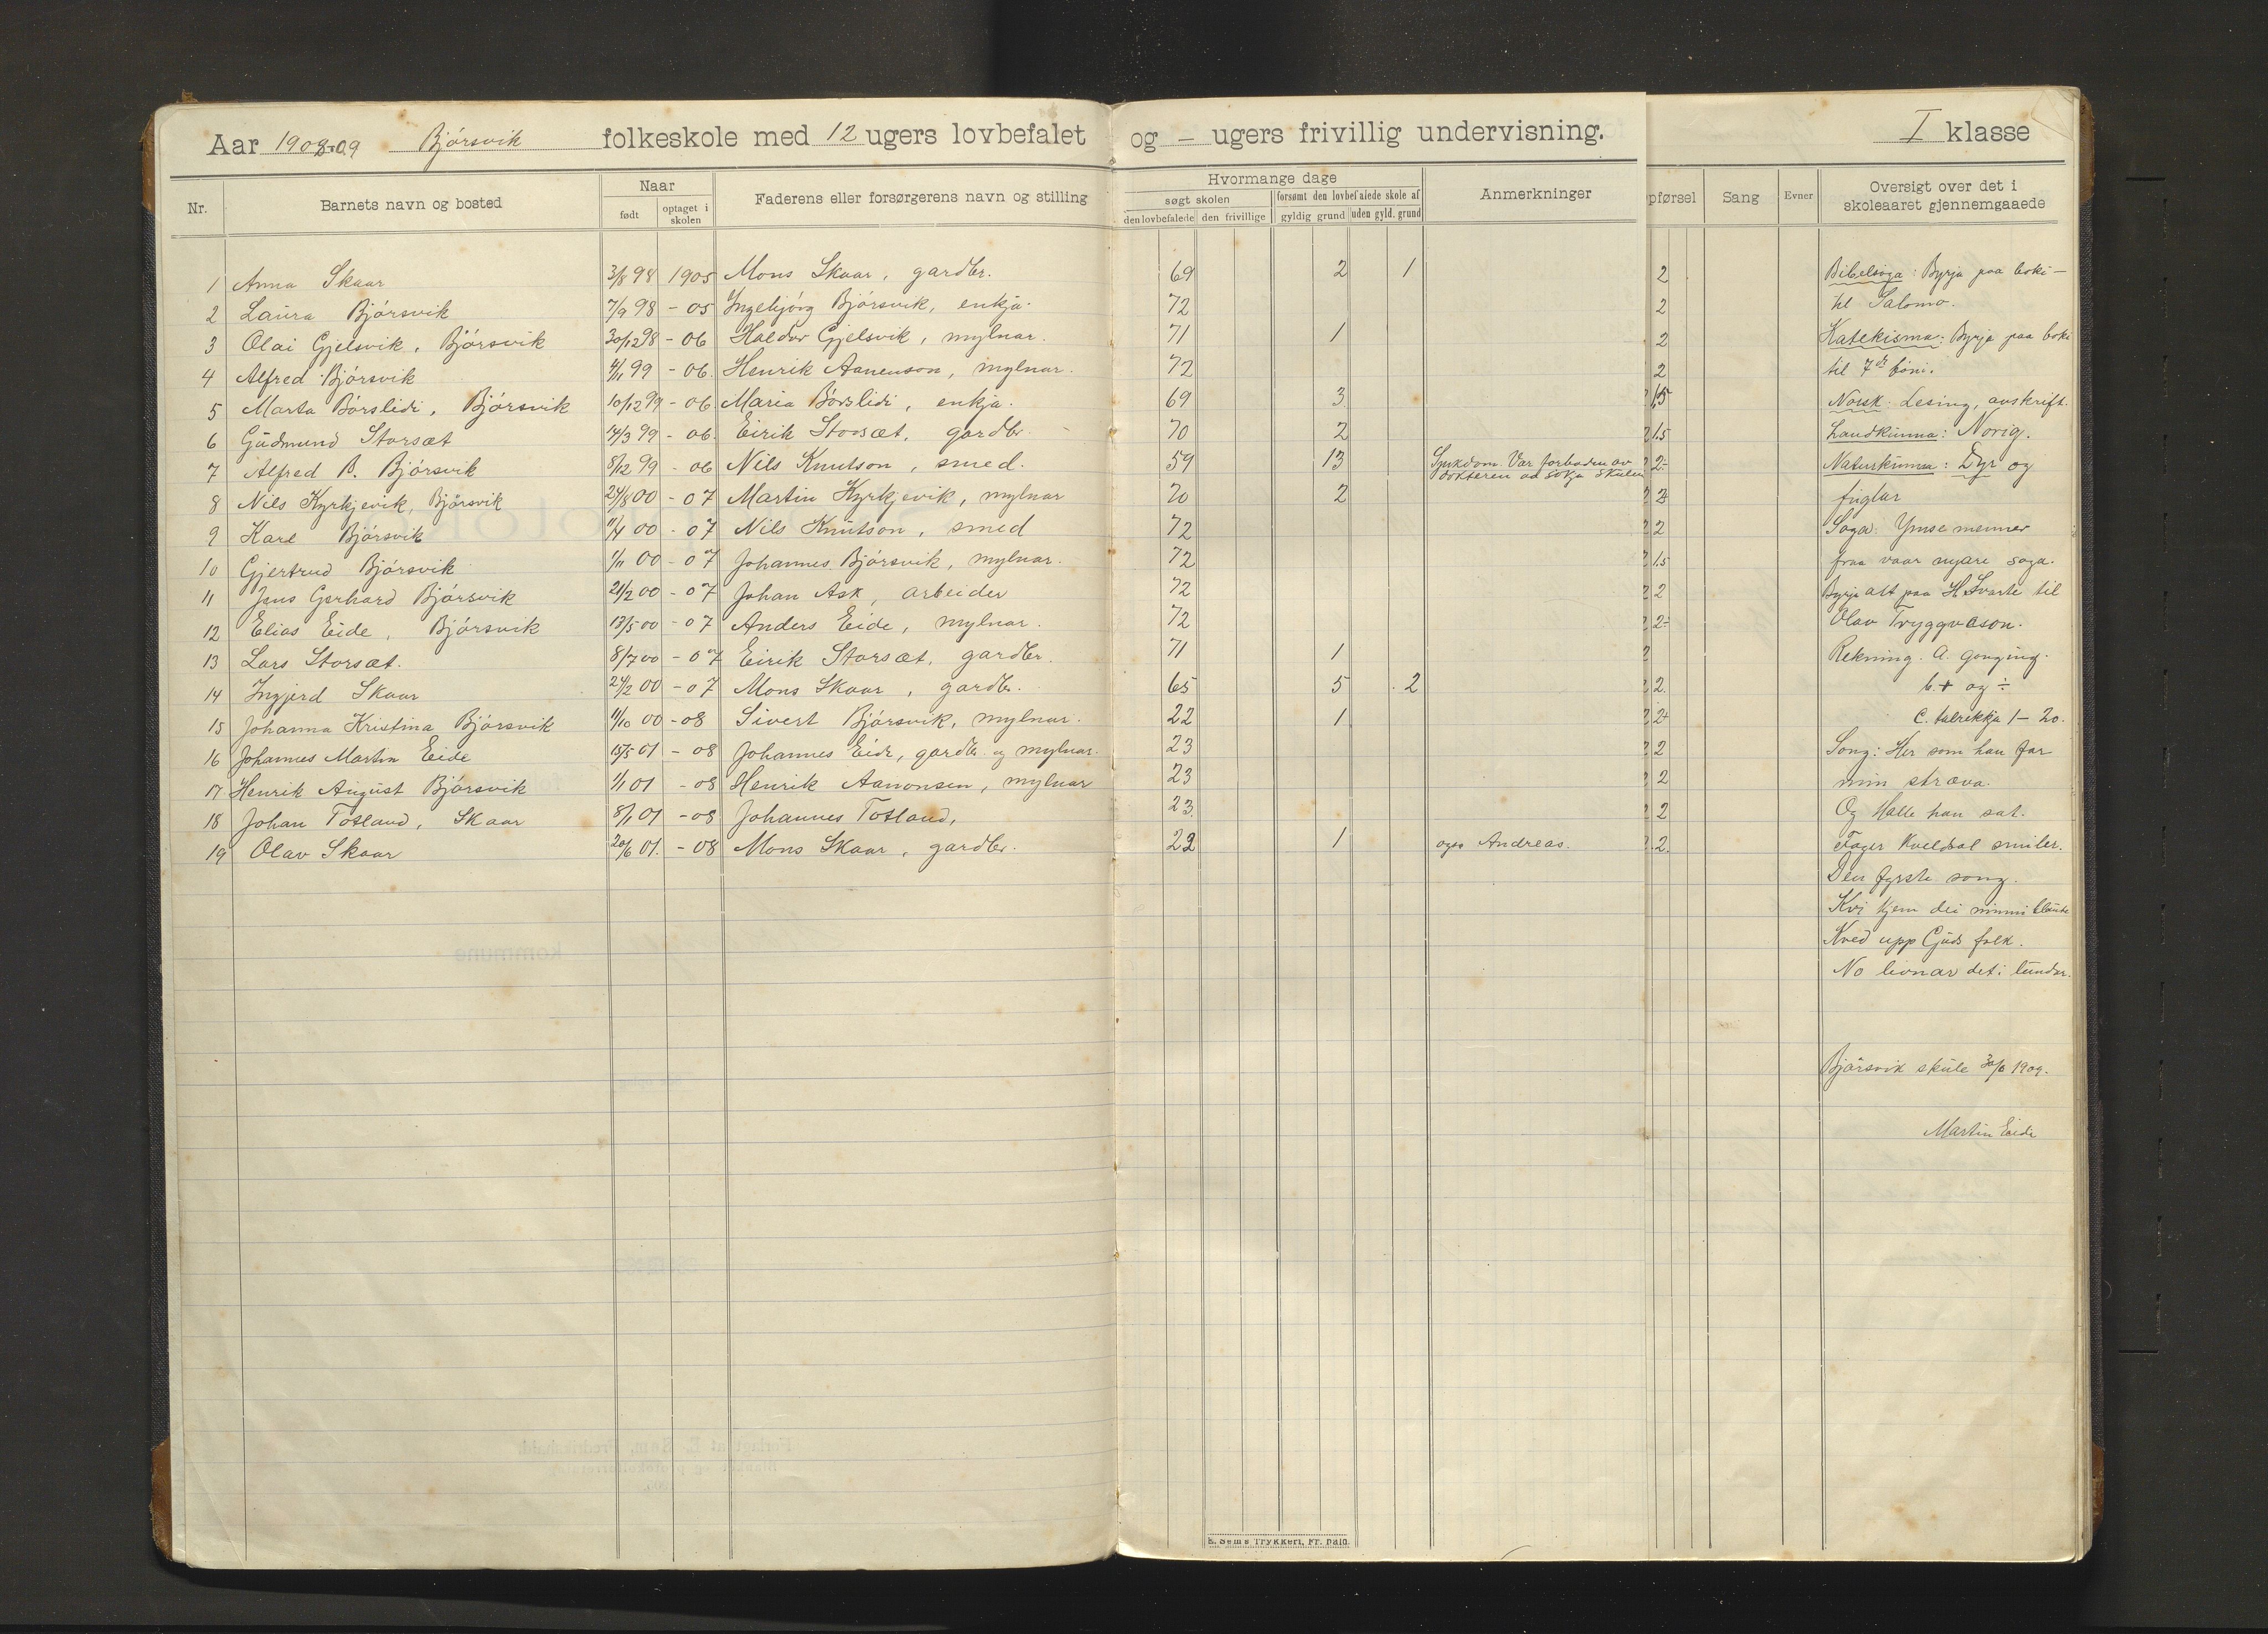 Aar 1908-09 Bjórsvik folkeskole med 12 ugers lovbefalet og – ugers frivillig undervisning. I klasse
Nr. Barnets navn og bosted Naar født optaget i skolen Faderens eller forsørgerens navn og stilling Hvormange dage søgt skolen den lovbefalede den frivillige forsømt den lovbefalede skole af gyldig grund uden gyld. grund Anmerkninger pførsel Sang Evner Oversigt over det i skoleaaret gjennemgaaede
1 Anna Skaar 3/8 98 1905 Mons Skaar, gardbr. 69 2 1 2 Bibelsoga: Byrja paa boki –
2 Laura Bjórsvik 7/9 98 - 05 Ingebjórg Bjórsvik, enkja. 72 2 til Salomo.
3 Olai Gjelsvik, Bjórsvik 30/12 98 - 06 Haldor Gjelsvik, mylnar. 71 1 2 Katekisma: Byrja paa boki
4 Alfred Bjórsvik 4/11 99 - 06. Henrik Aanenson, mylnar. 72 2 til 7de bóni.
5 Marta Bórslidi, Bjórsvik 10/12 99 - 06 Maria Bórslidi, enkja. 69 3 1,5 Norsk. Lesing, avskrift.
6 Gudmund Storsæt 14/3 99 - 06. Eirik Storsæt, gardbr. 70 2 2 1.5 Landkunna: Norig.
7 Alfred B. Bjórsvik 8/12 99 - 06 Nils Knutson, smed. 59 13 Sjukdom. Var forboden av dokteren ad sókja skulen 2 2- Naturkunna: Dyr og
8 Nils Kyrkjevik, Bjórsvik 24/8 00 - 07 Martin Kyrkjevik, mylnar 70 2 2 2 fuglar
9 Karl Bjórsvik 11/4 00 - 07 Nils Knutson, smed 72 2 2 Soga: Ymse menner
10 Gjertrud Bjórsvik 1/11 00 - 07 Johannes Bjórsvik, mylnar. 72 2 1.5 fraa vaar nyare soga.
11 Jens Gerhard Bjórsvik 21/2 00 - 07 Johan Ask, arbeider 72 2 2 Byrja att paa H. Svarte til
12 Elias Eide, Bjórsvik 13/5 00 - 07 Anders Eide, mylnar. 72 2 2- Olav Tryggvason.
13 Lars Storsæt. 8/7 00 - 07 Eirik Storsæt, gardbr. 71 1 2 Rekning. a. gonging.
14 Ingjerd Skaar 24/2 00 - 07 Mons Skaar, gardbr. 65 5 2 2 2. b. + og ÷
15 Johanna Kristina Bjórsvik 11/10 00 - 08 Sivert Bjórsvik, mylnar. 22 1 2 2+ c. talrekkja 1 – 20.
16 Johannes Martin Eide 15/5 01 - 08 Johannes Eide, gardbr. og mylnar. 23 2 2 Song: Her som han far
17 Henrik August Bjórsvik 1/1 01 - 08 Henrik Aanonsen, mylnar 23 2 2 min stræva.
18 Johan Totland, Skaar 8/1 01 - 08 Johannes Totland, 23. 2 2 Og Halle han sat.
19 Olav Skaar 20/6 01. - 08 Mons Skaar, gardbr. 22 1 Andreas. 2 2. Fager kveldsol smiler.
Den fyrste song.
Kvi kjem dei minni
Kved upp Guds folk.
No livnar det i lundar.
Bjórsvik skule 30/6 1909.
Martin Eide
kommune
E. Sems Trykkeri, Fr. hald.